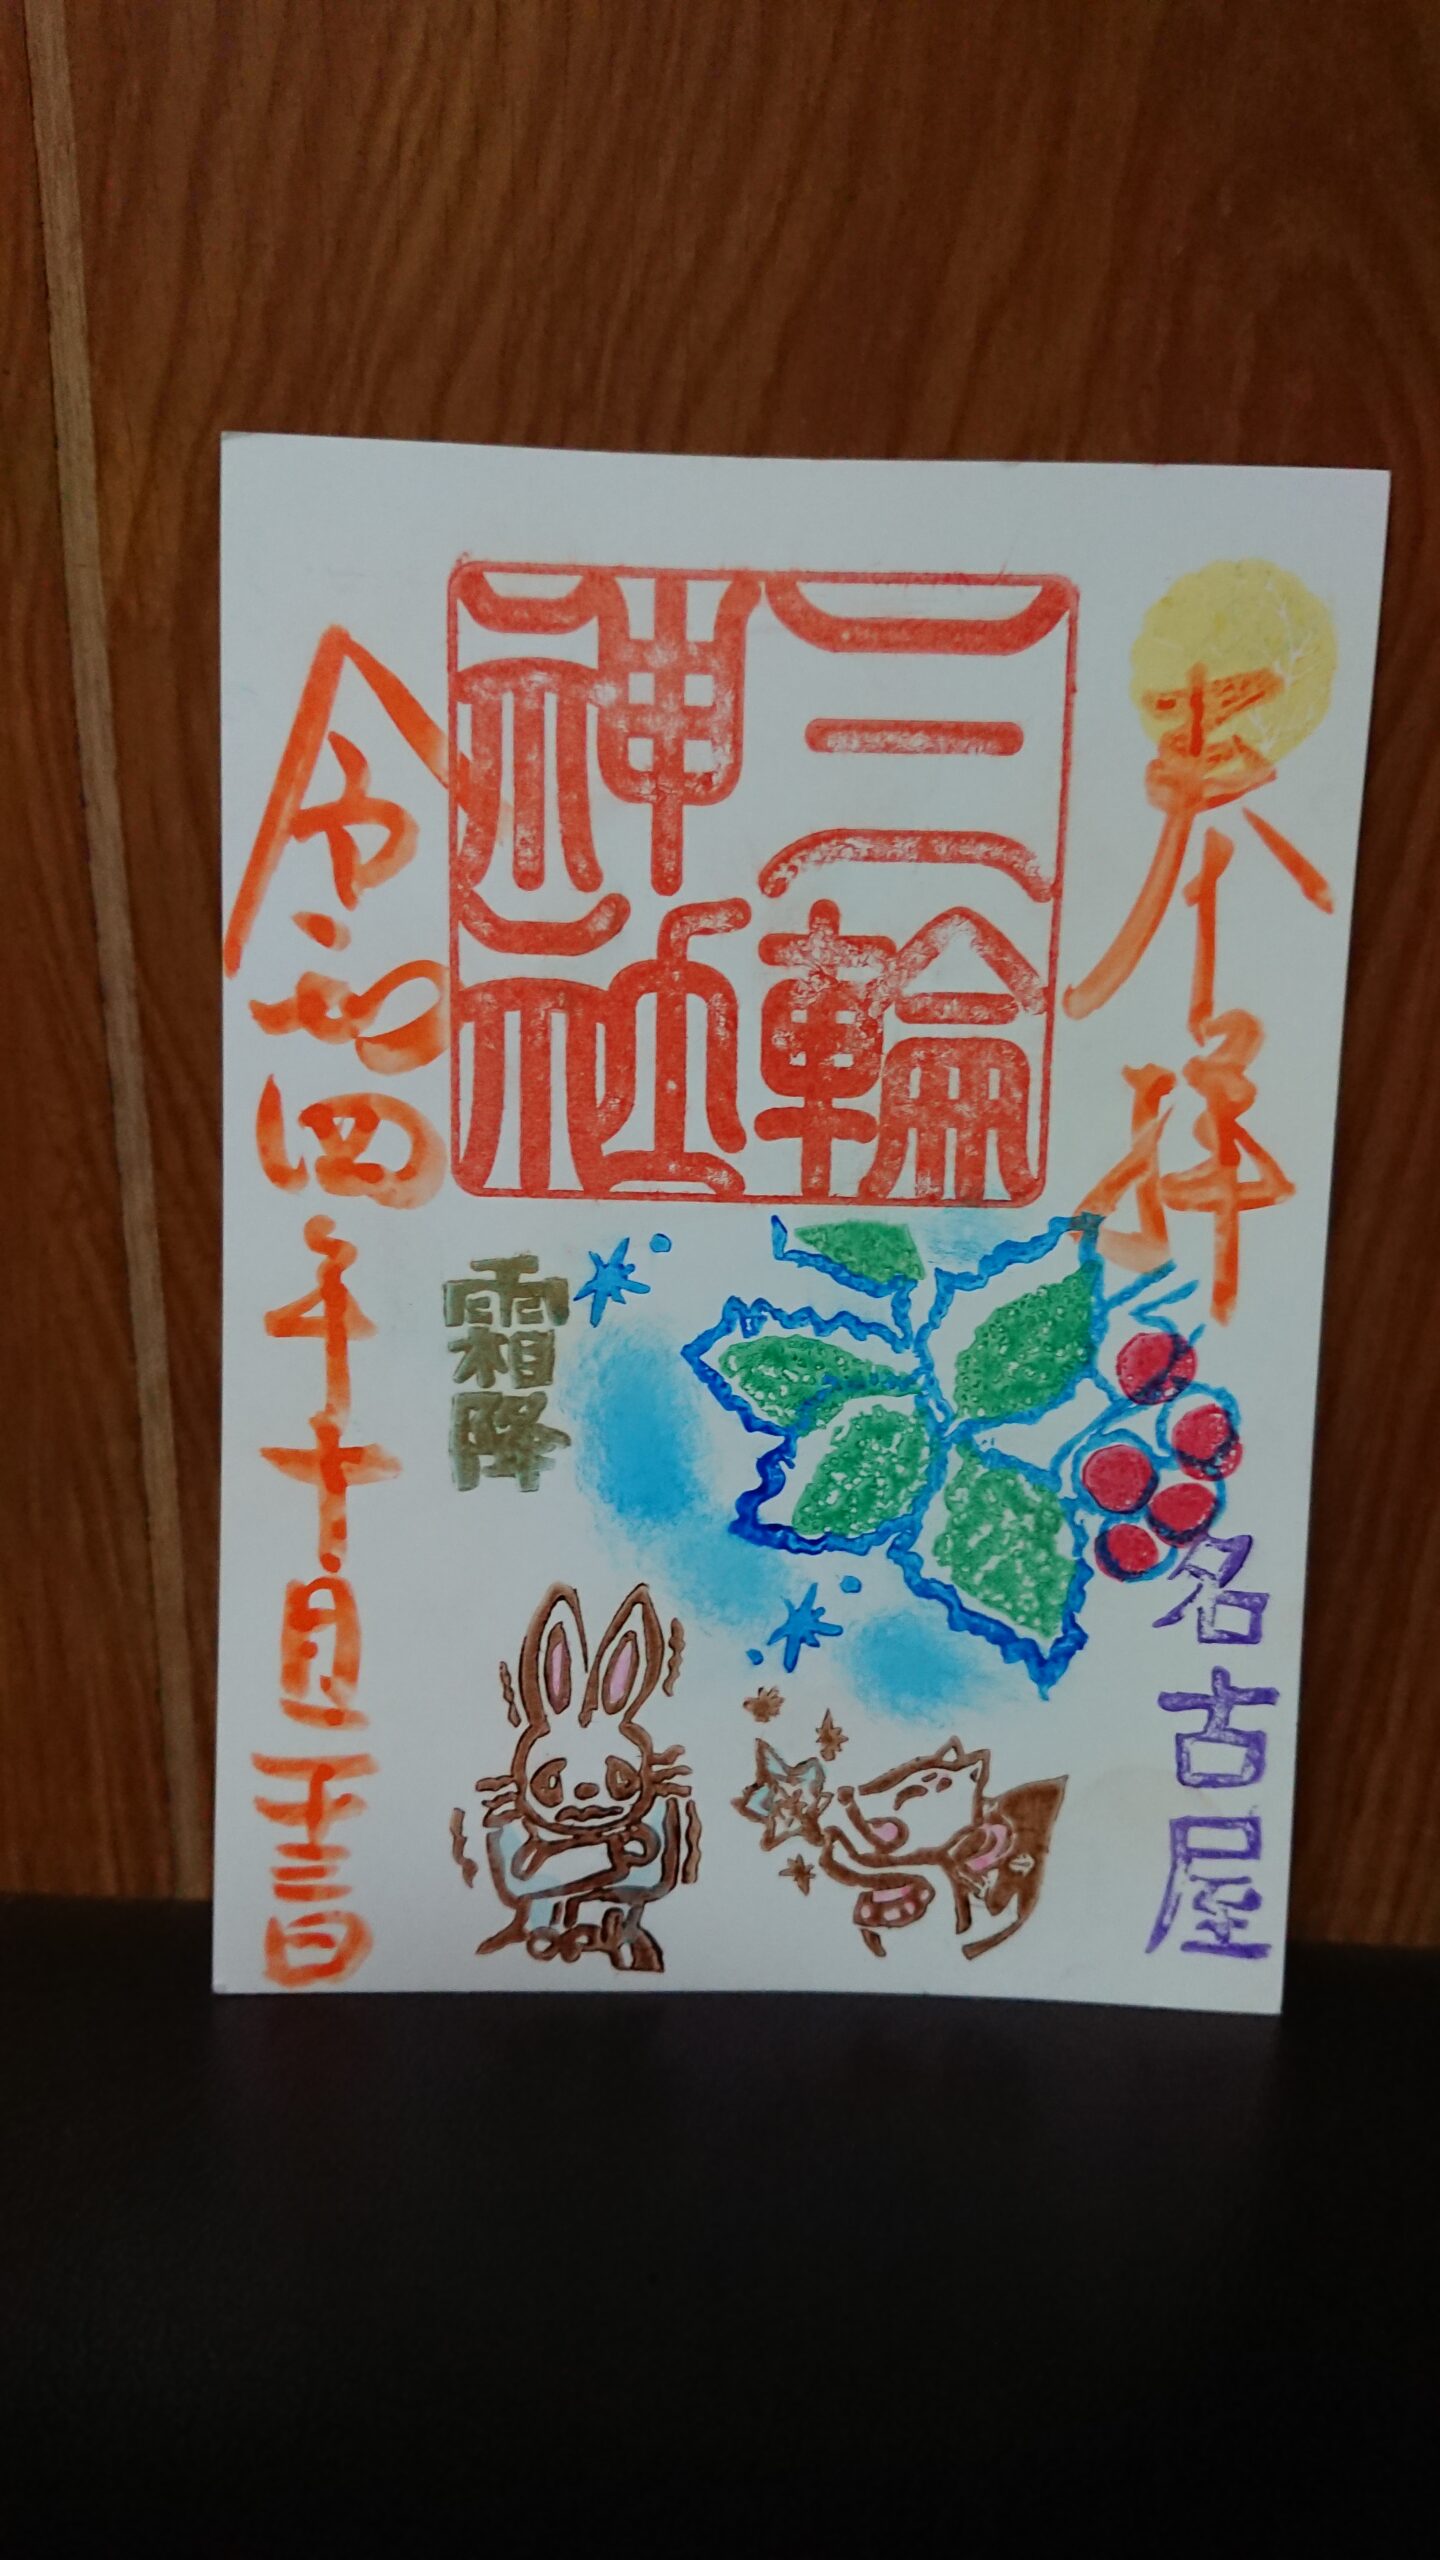 奉拝
名古屋
三輪
神社
霜降
令和四年十月二十三日